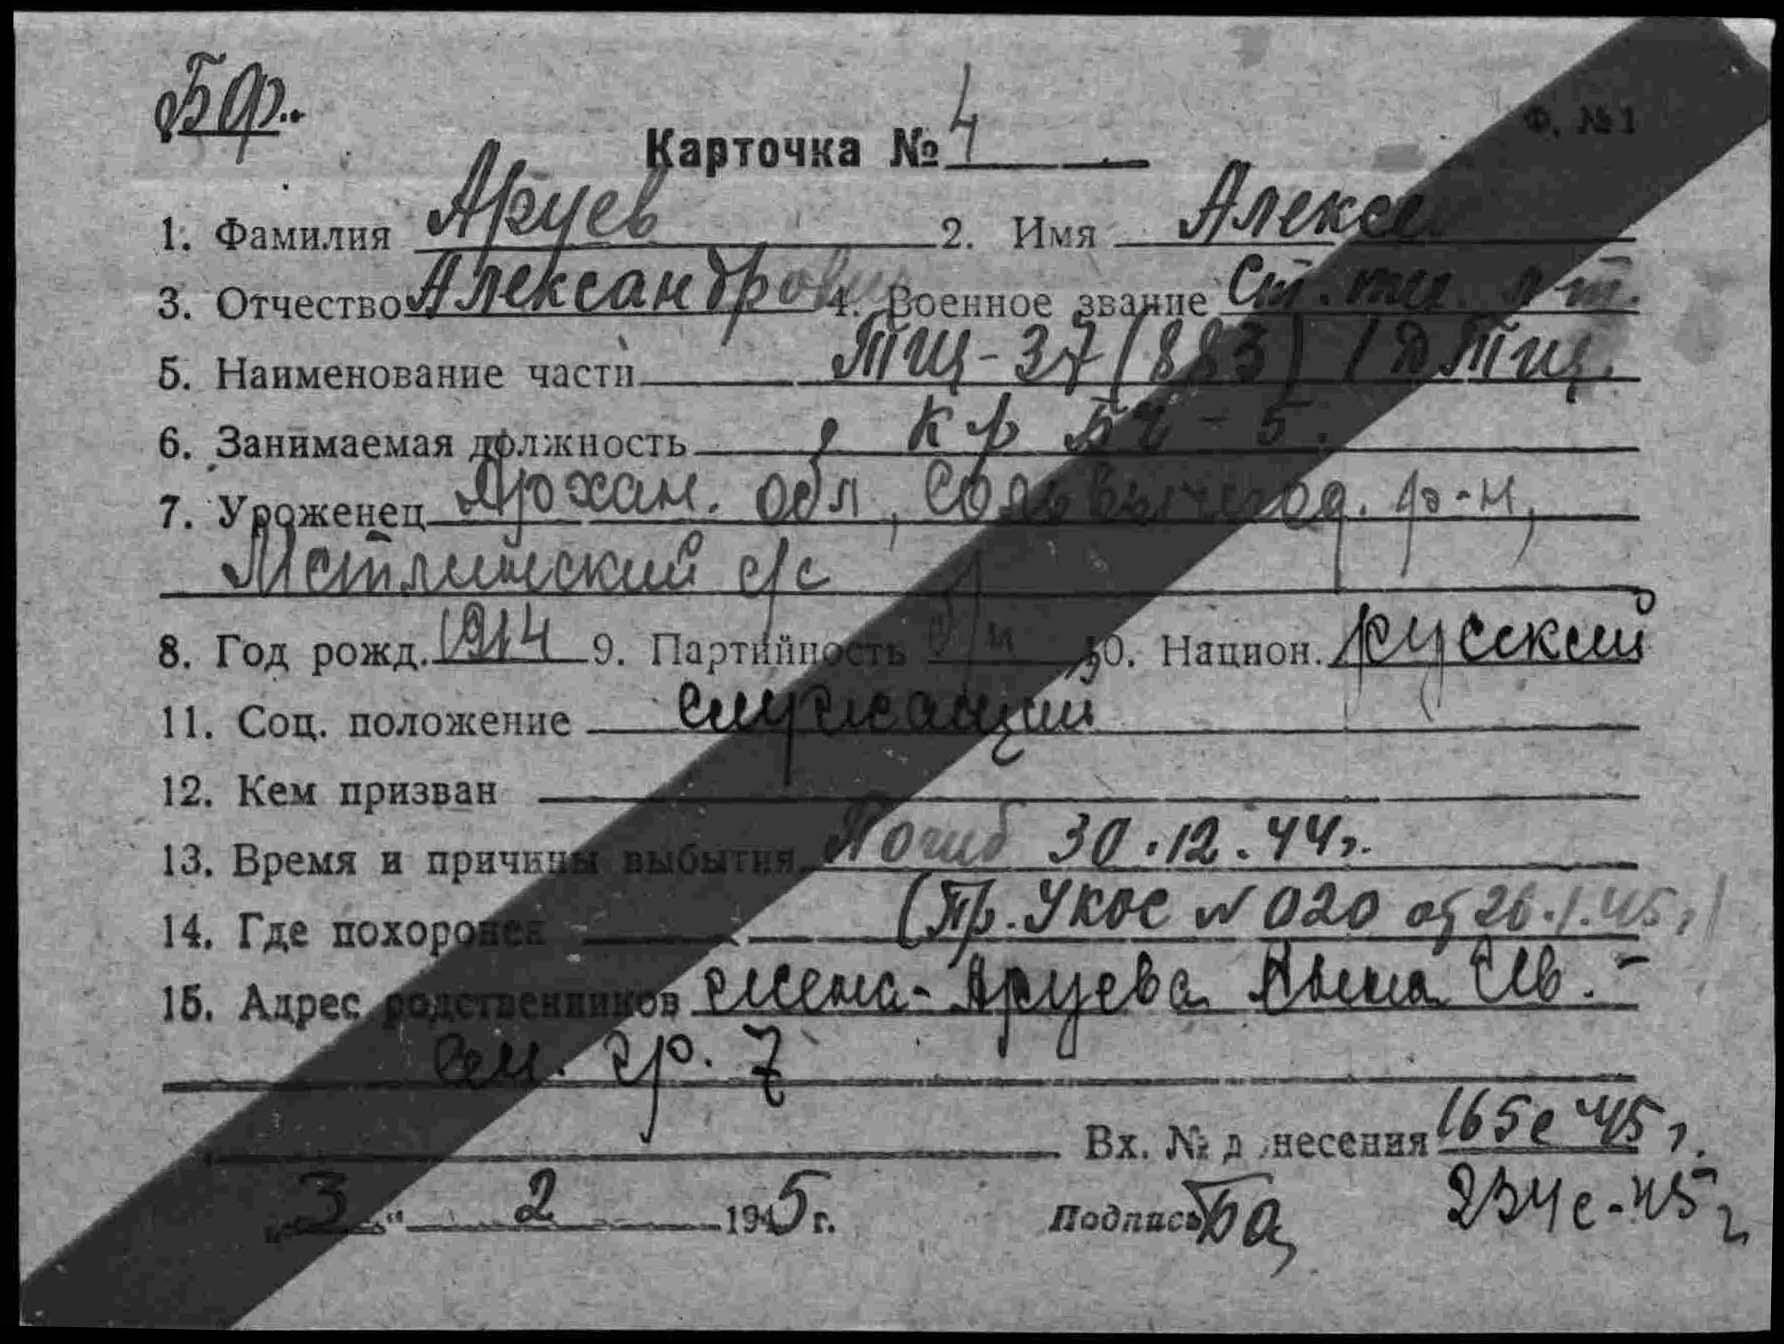 БФ.
Ф. №1
Карточка № 4
1. Фамилия Аруев 2. Имя Алексей
3. Отчество Александрович 4. Военное звание Ст. тех. л-т.
5. Наименование части ТЩ-37 (883) 1 ДТЩ.
6. Занимаемая должность к-р БЧ-5.
7. Уроженец Архан. обл, Сольвычегод. р-н,
Метлинский с/с
8. Год рожд. 1914 9. Партийность б/п 10. Национ. русский
11. Соц. положение служащий
12. Кем призван
13. Время и причины выбытия Погиб 30.12.44г.
14. Где похоронен (Пр. УКОС № 020 от 26.1.45г)
15. Адрес родственников жена - Аруева Анна Ив. -
см. гр. 7
Вх. № донесения 165с 45 г.
234с-45 г
„3“ 2 1945 г. Подпись